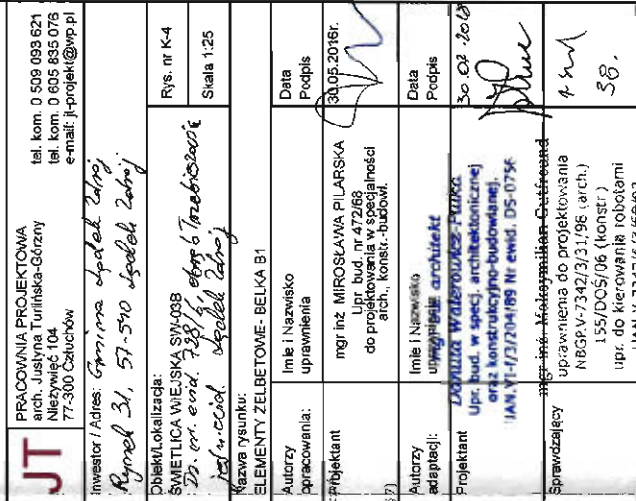 JT
PRACOWNIA PROJEKTOWA
arch. Justyna Turlińska-Górzny
Nieżywięć 104
77-300 Człuchów
tel. kom. 0 509 093 621
tel. kom. 0 605 835 076
e-mail: jt-projekt@wp.pl
Inwestor / Adres: Gmina Lądek Zdrój
Rynek 31, 57-540 Lądek Zdrój
Obiekt/Lokalizacja:
ŚWIETLICA WIEJSKA SW-03B
Dz. nr ewid. 728/6, obręb Trzebieszowice
Lądek Zdrój
Rys. nr K-4
Skala 1:25
Nazwa rysunku:
ELEMENTY ŻELBETOWE- BELKA B1
Autorzy
opracowania:
Imie i Nazwisko
uprawnienia
Data
Podpis
Projektant
mgr inż MIROSŁAWA PILARSKA
Upr bud. nr 472/68
do projektowania w specjalności
arch., konstr.-budowl.
30.05.2016r.
Autorzy
adaptacji:
Imie i Nazwisko
uprawnienia
Data
Podpis
Projektant
mgr inż. architekt
Danuta
Upr. bud. w specj. architektonicznej
oraz konstrukcyjno-budowlanej.
UAN.VI-f/3/204/89 Nr ewid. DS-0756
Sprawdzający
mgr inż. Maksymilian Gutfround
uprawnienia do projektowania
NBGP.V-7342/3/31/98 (arch.)
155/DOŚ/06 (konstr.)
upr. do kierowania robotami